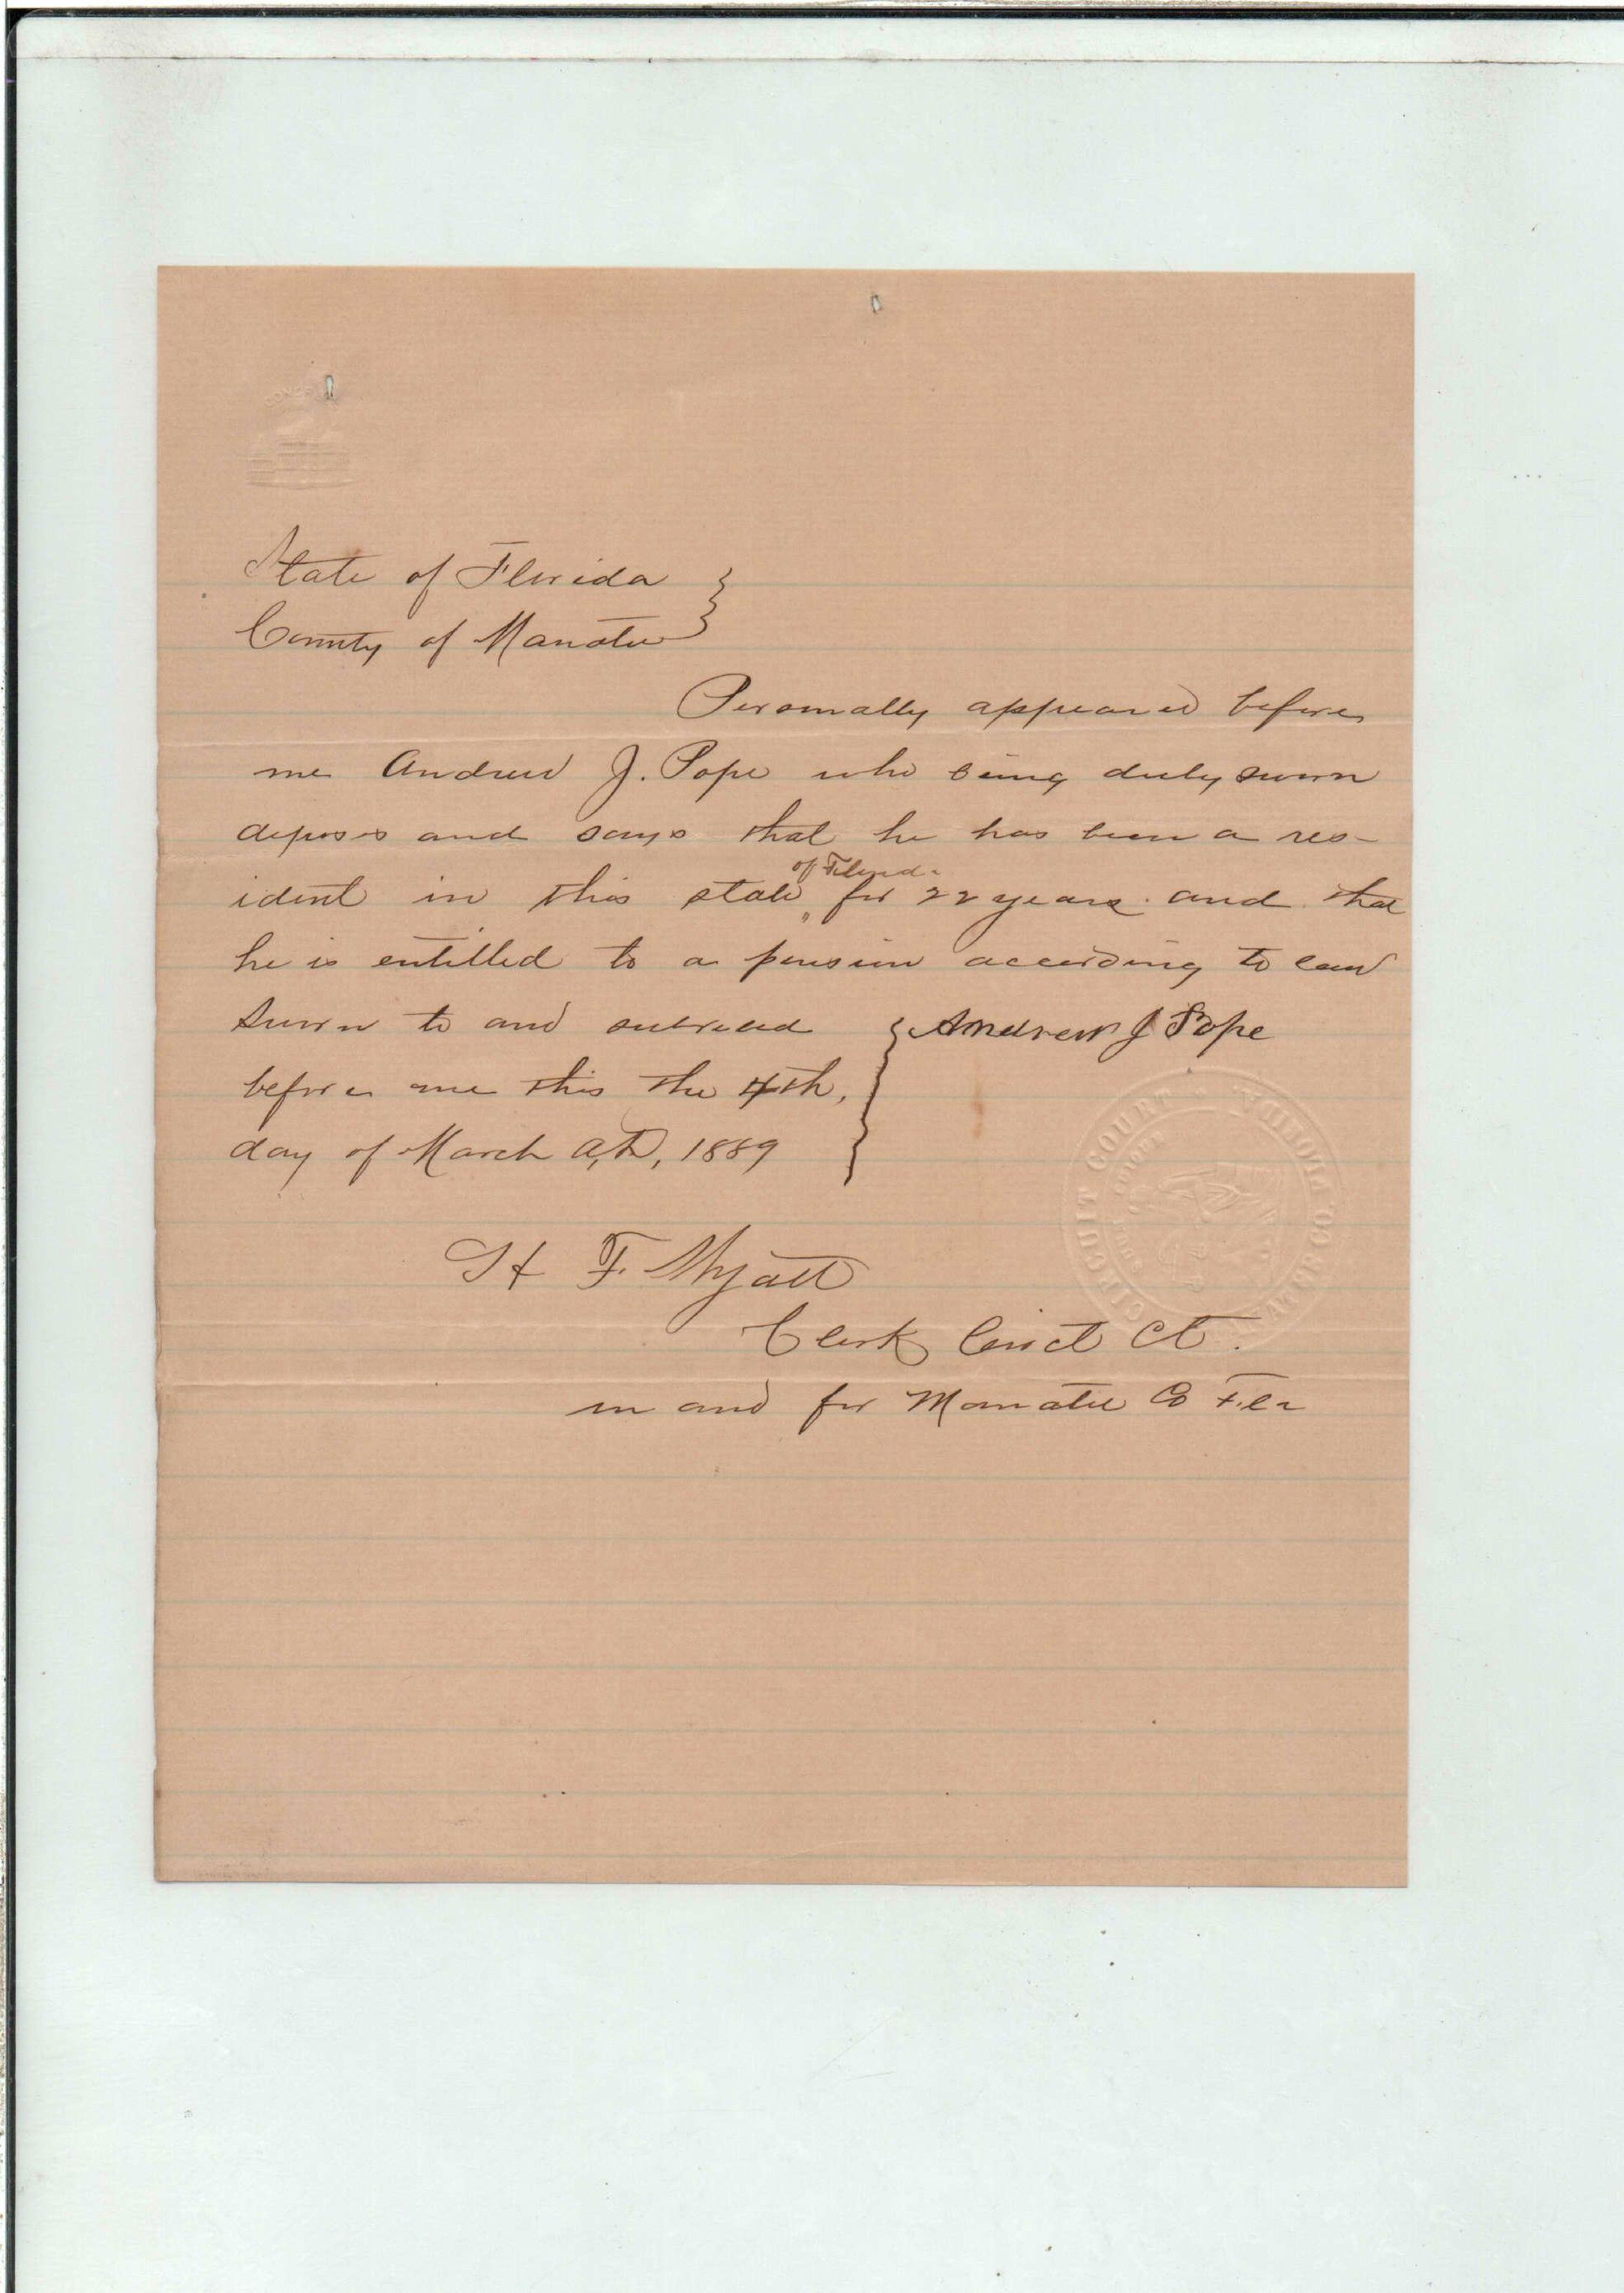 State of Florida }
County of Manatee }
Personally appeared before
me Andrew J. Pope who being duly sworn
deposes and says that he has been a res-
of Florida
ident in this state for 22 years and that
he is entitled to a pension according to law
Sworn to and { Andrew J Pope
before me this the 4th,
day of March A,D, 1889
H F. Wyatt
Clerk Circt Ct.
in and for Manatee Co Fla
CIRCUIT COURT
MANATEE CO FLORIDA